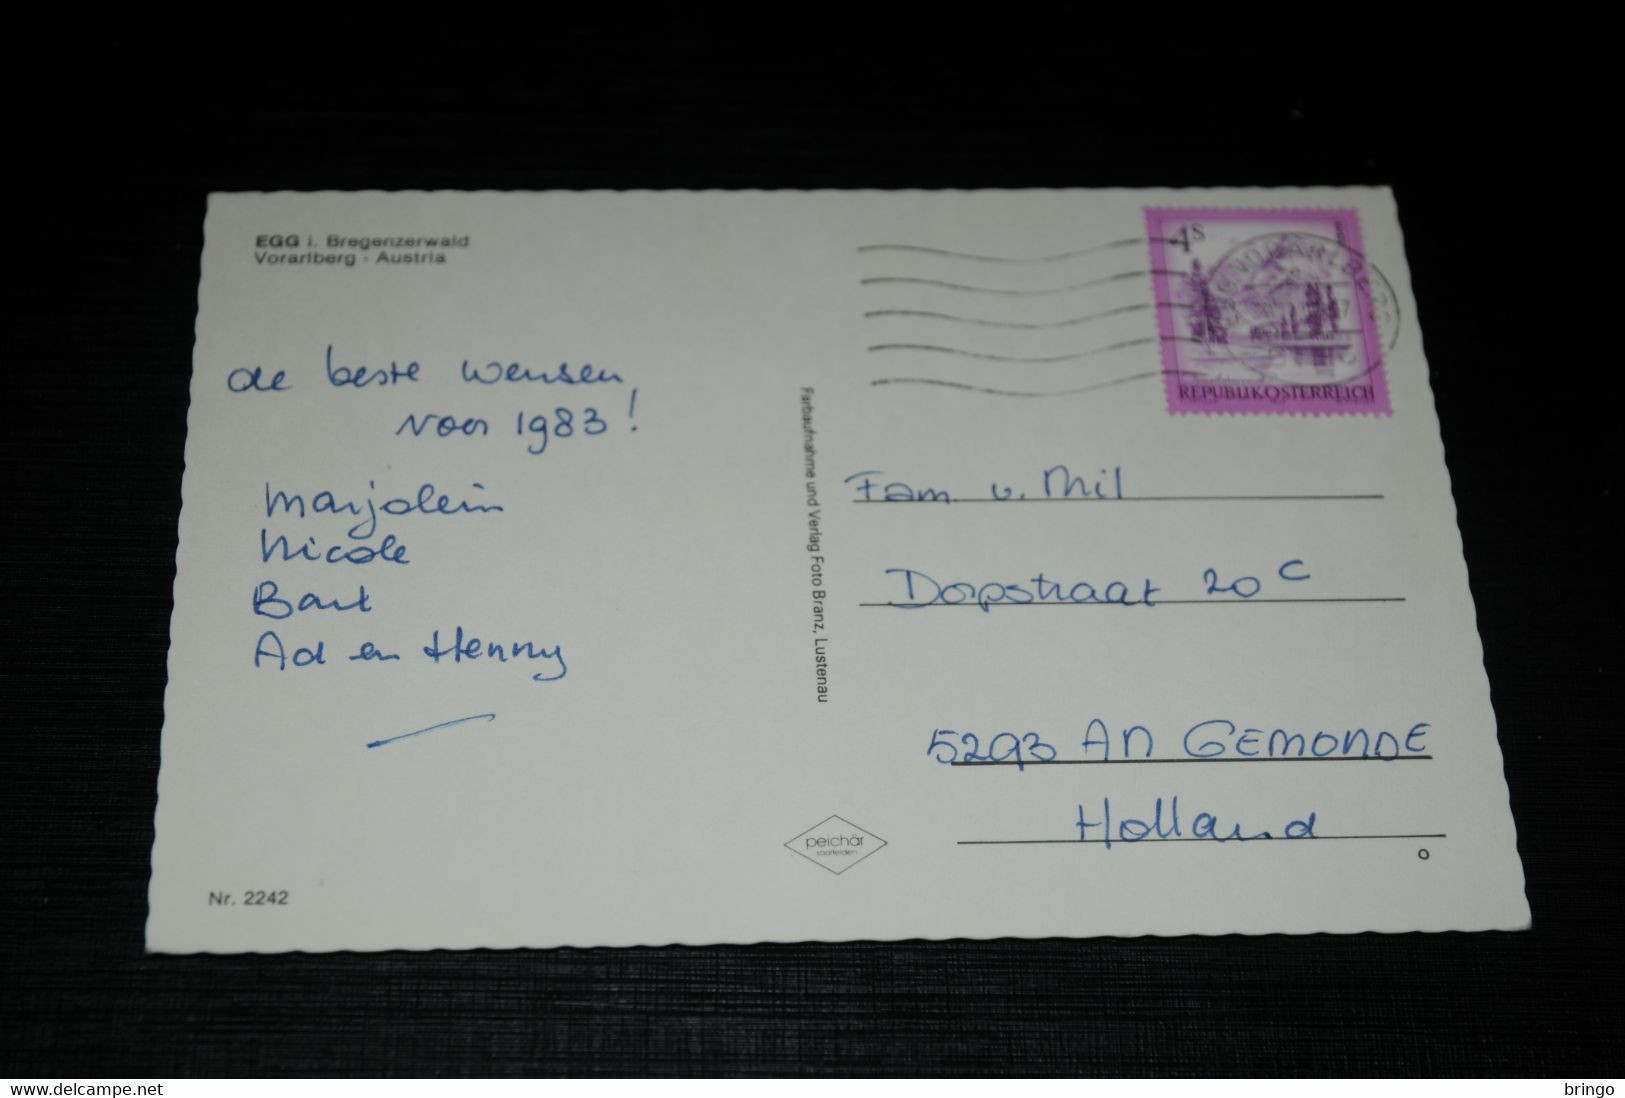 EGG i. Bregenzerwald
Vorarlberg - Austria
de beste wensen
voor 1983!
Marjolein
Nicole
Bart
Ad en Henny
Nr. 2242
Farbaufnahme und Verlag Foto Branz, Lustenau
peichär
saalfelden
4 S
REPUBLIK ÖSTERREICH
Fam v. Mil
Dorpstraat 20 C
5293 AN GEMONDE
Holland
delcampe.net
bringo